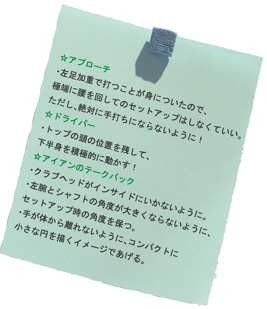 ☆アプローチ
・左足加重で打つことが身についたので、
極端に腰を回してのセットアップはしなくていい。
ただし、絶対に手打ちにならないように！
☆ドライバー
・トップの頭の位置を残して、
下半身を積極的に動かす！
☆アイアンのテークバック
・クラブヘッドがインサイドにいかないように。
・左腕とシャフトの角度が大きくならないように、
セットアップ時の角度を保つ。
・手が体から離れないように、コンパクトに
小さな円を描くイメージであげる。